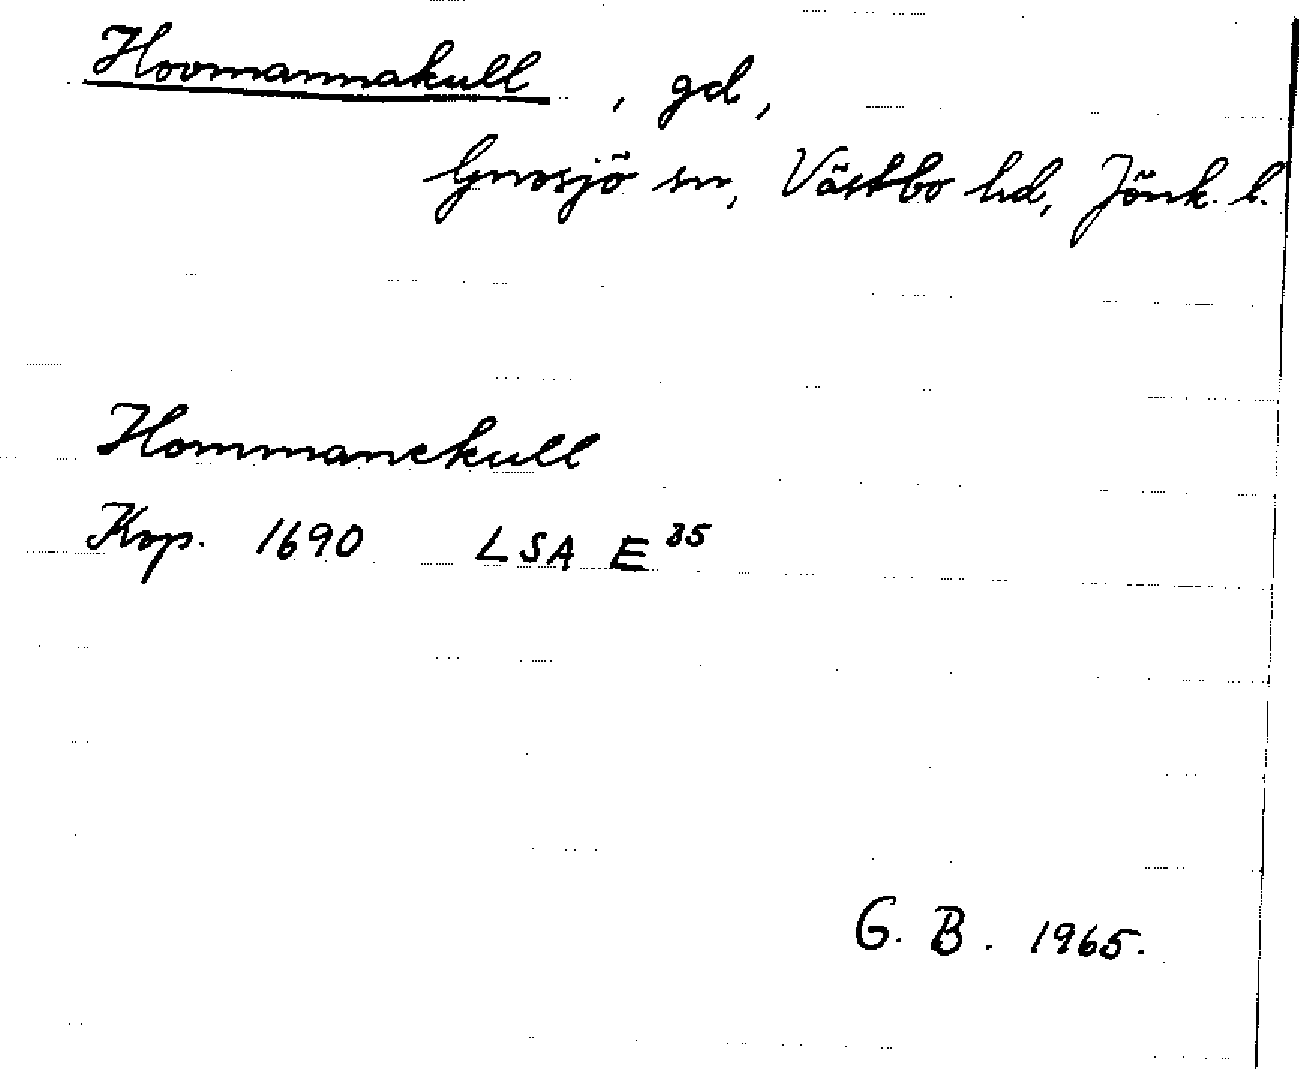 Hovmannakull , gd,
Gnosjö sn, Västbo hd, Jönk. l.
Hommanekull
Kop. 1690 LSA E 35
G. B. 1965.